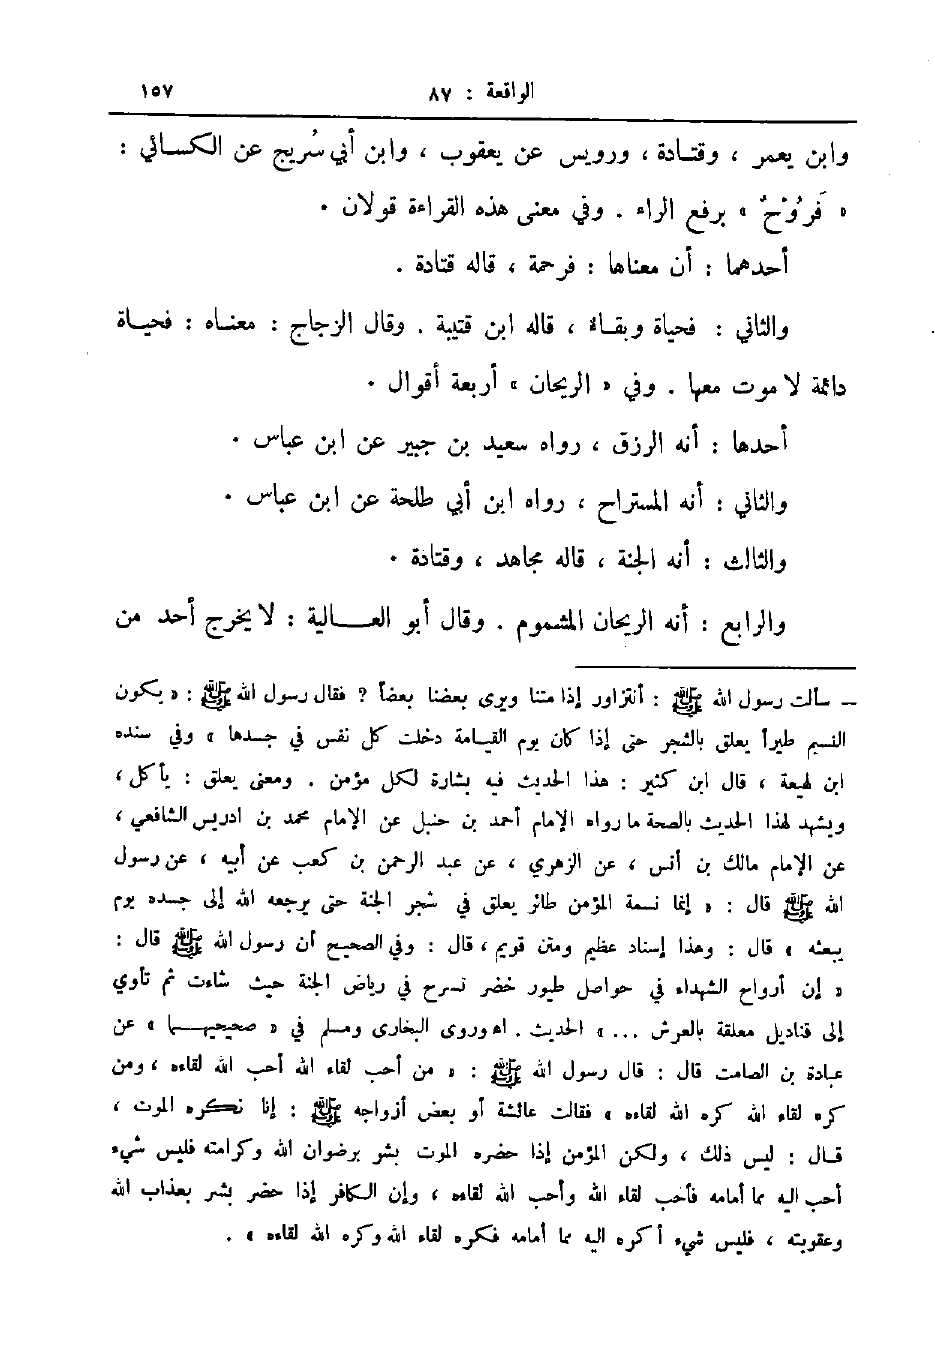 الواقعة : ٨٧ ١٥٧
وابن يعمر ، وقتادة ، ورويس عن يعقوب ، وابن أبي سُريج عن الكسائي :
« فَرُوْحٌ » برفع الراء . وفي معنى هذه القراءة قولان .
أحدهما : أن معناها : فرحمة ، قاله قتادة .
والثاني : فحياة وبقاء ، قاله ابن قتيبة . وقال الزجاج : معناه : فحياة
دائمة لا موت معها . وفي « الريحان » أربعة أقوال .
أحدها : أنه الرزق ، رواه سعيد بن جبير عن ابن عباس .
والثاني : أنه المستراح ، رواه ابن أبي طلحة عن ابن عباس .
والثالث : أنه الجنة ، قاله مجاهد ، وقتادة .
والرابع : أنه الريحان المشموم . وقال أبو العالية : لا يخرج أحد من
ـ سألت رسول الله ﷺ : أنتزاور إذا متنا ويرى بعضنا بعضاً ؟ فقال رسول الله ﷺ : « يكون
النسم طيراً يعلق بالشجر حتى إذا كان يوم القيامة دخلت كل نفس في جسدها » وفي سنده
ابن لهيعة ، قال ابن كثير : هذا الحديث فيه بشارة لكل مؤمن . ومعنى يعلق : يأكل ،
ويشهد لهذا الحديث بالصحة ما رواه الإمام أحمد بن حنبل عن الإمام محمد بن ادريس الشافعي ،
عن الإمام مالك بن أنس ، عن الزهري ، عن عبد الرحمن بن كعب عن أبيه ، عن رسول
الله ﷺ قال : « إنما نسمة المؤمن طائر يعلق في شجر الجنة حتى يرجعه الله إلى جسده يوم
يبعثه » قال : وهذا إسناد عظيم ومتن قويم ، قال : وفي الصحيح أن رسول الله ﷺ قال :
« إن أرواح الشهداء في حواصل طيور خضر تسرح في رياض الجنة حيث شاءت ثم تأوي
إلى قناديل معلقة بالعرش ... » الحديث . اه وروى البخاري ومسلم في « صحيحيهما » عن
عبادة بن الصامت قال : قال رسول الله ﷺ : « من أحب لقاء الله أحب الله لقاءه ، ومن
كره لقاء الله كره الله لقاءه » فقالت عائشة أو بعض أزواجه ﷺ : إنا نكره الموت ،
قال : ليس ذلك ، ولكن المؤمن إذا حضره الموت بشر برضوان الله وكرامته فليس شيء
أحب اليه مما أمامه فأحب لقاء الله وأحب الله لقاءه ، وإن الكافر إذا حضر بشر بعذاب الله
وعقوبته ، فليس شيء أكره اليه مما أمامه فكره لقاء الله وكره الله لقاءه » .